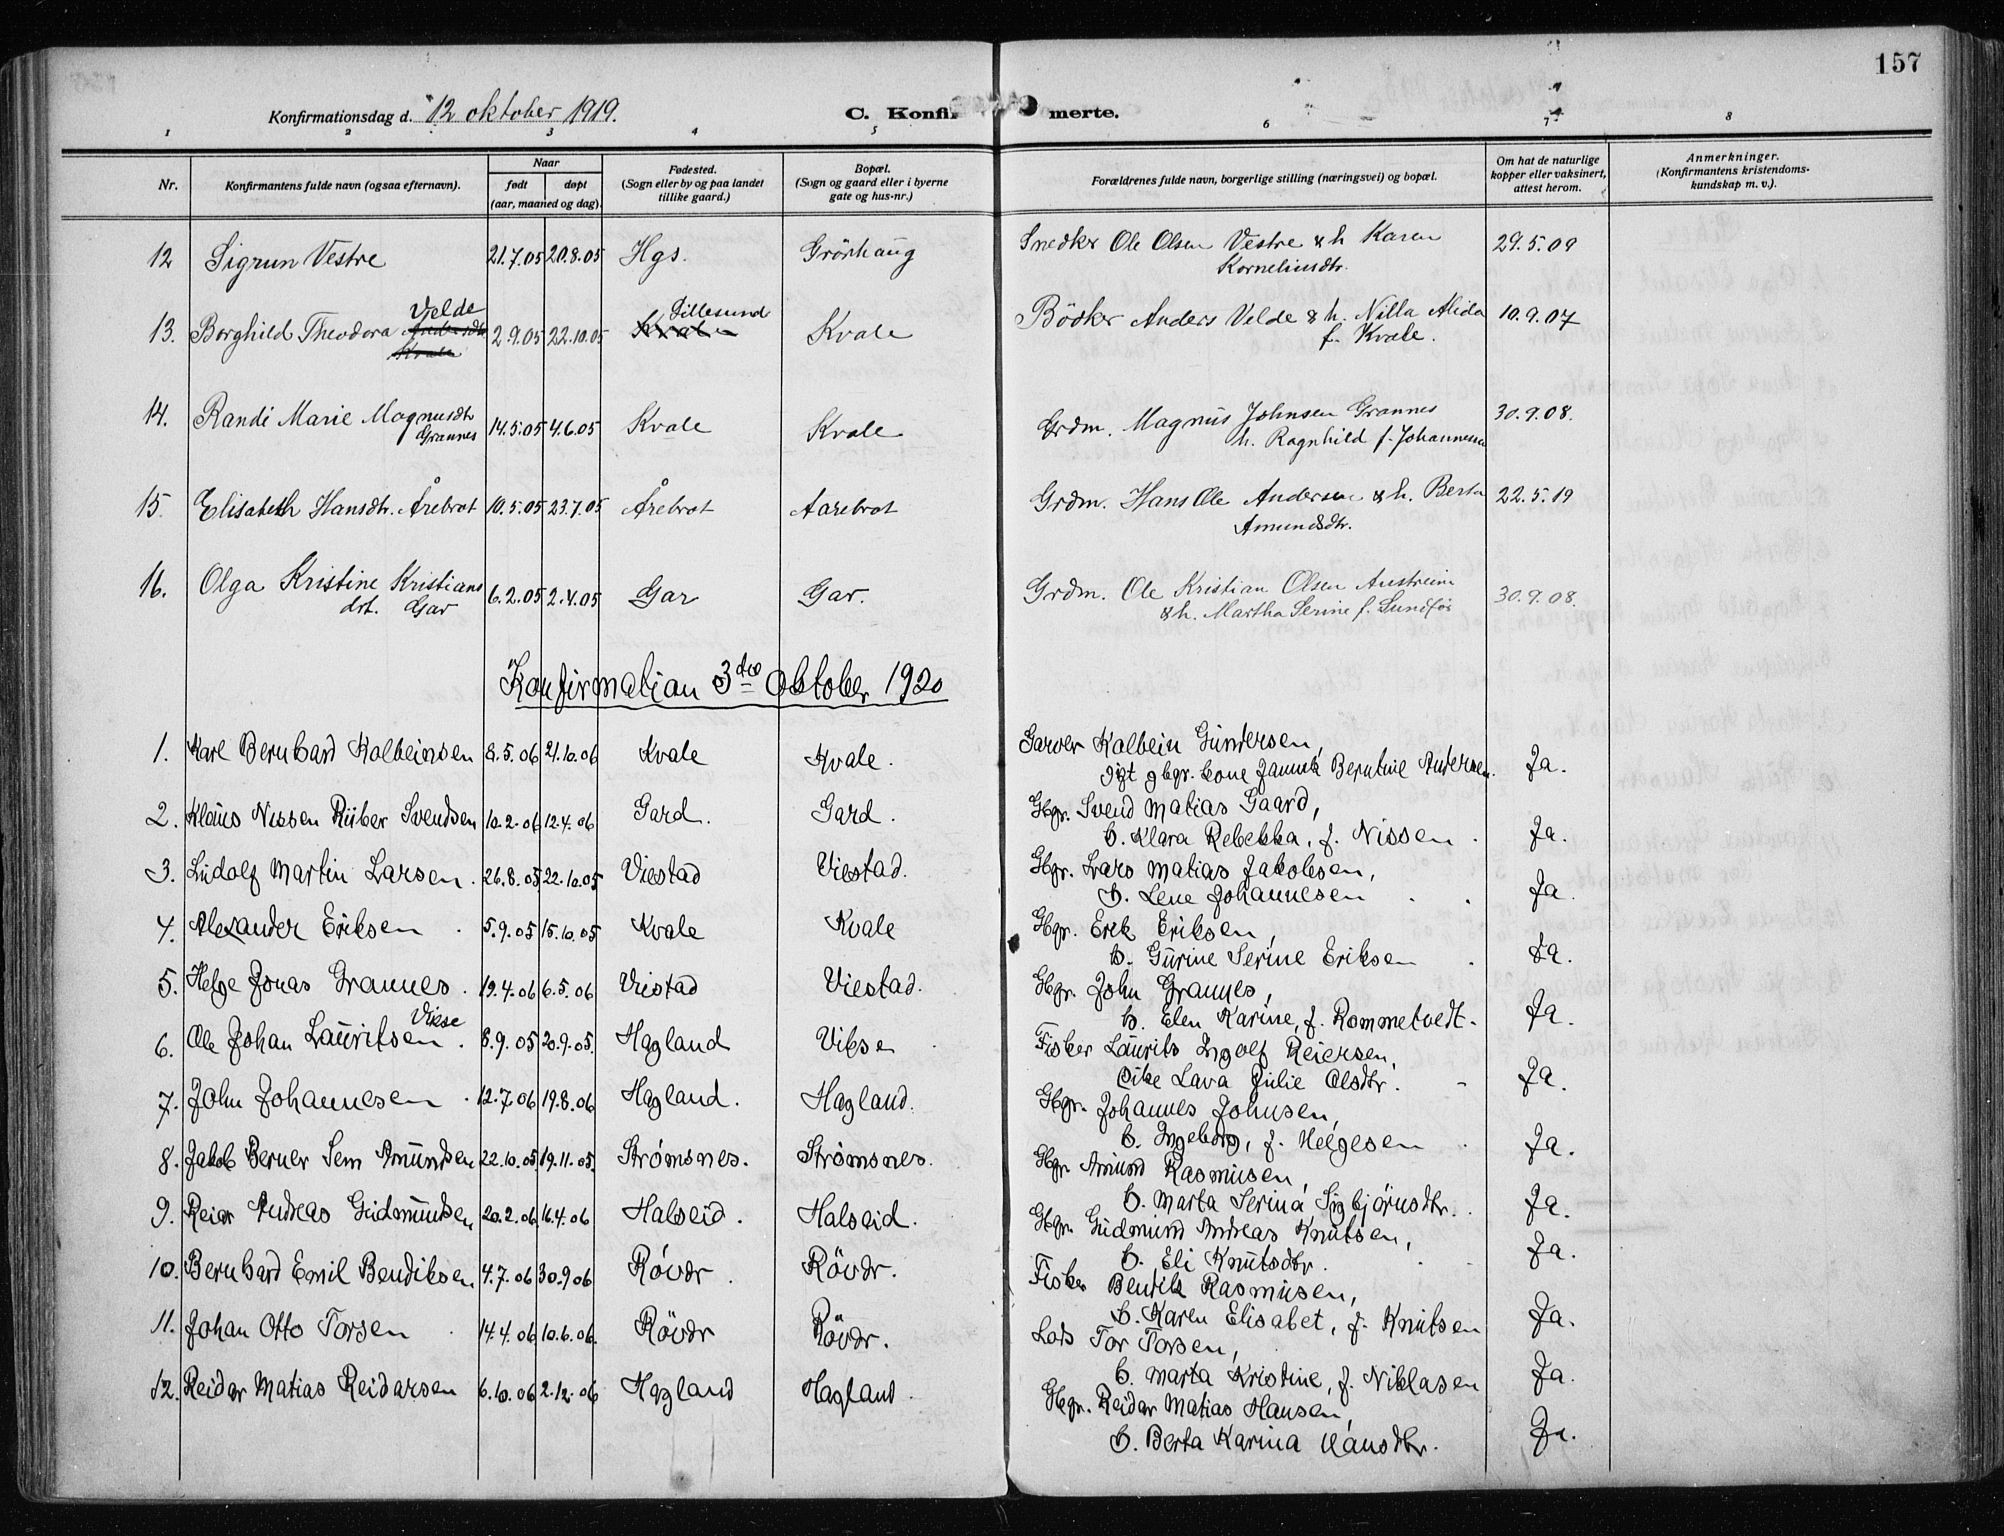 157
Konfirmationsdag d. 12 oktober 1919. C. Konfir merte.
1 2 3 4 5 6 7 8
Nr. Konfirmantens fulde navn (ogsaa efternavn). Naar født døpt (aar, maaned og dag). Fødested. (Sogn eller by og paa landet tillike gaard.) Bopæl. (Sogn og gaard eller i byerne gate og hus-nr.) Forældrenes fulde navn, borgerlige stilling (næringsvei) og bopæl. Om hat de naturlige kopper eller vaksinert, attest herom. Anmerkninger. (Konfirmantens kristendoms-kundskap m. v.).
12 Sigrun Vestre 21.7.05 20.8.05 Hgs. Grönhaug Snedker Ole Olsen Vestre & h Karen 29.5.09
Korneliusdtr.
13. Borghild Theodora Velde 2.9.05 22.10.05 Sillesund Kvale Bödker Anders Velde & h. Nilla Alida 10.9.07
Kvale f. Kvale.
14. Randi Marie Magnusdtr 14.5.05 4.6.05 Kvale Kvale Grdm. Magnus Johnsen Grannes 30.9.08.
Grannes h. Ragnhild f. Johannessen
15. Elisabeth Hansdtr. Årebrot 10.5.05 23.7.05 Årebrot Aarebrot Grdm. Hans Ole Andersen & h. Berta 22.5.19
Amundsdtr.
16. Olga Kristine Kristians 6.2.05 2.4.05 Gar Gar. Grdm. Ole Kristian Olsen Austreim 30.9.08.
drt. Gar & h. Martha Serine f. Sundför
Konfirmation 3die Oktober 1920
1. Karl Bernhard Kolbeinsen 8.5.06 21.10.06 Kvale Kvale. Garver Kolbein Gundersen,
Berntine Andersen. Ja.
2. Klaus Nissen Riiber Svendsen 10.2.06 12.4.06 Gard. Gard. Gbgr. Svend Matias Gaard,
h. Klara Rebekka, f. Nissen. Ja.
3. Ludolf Martin Larsen. 26.8.05 22.10.05 Viestad Viestad. Gbgr. Lars Matias Jakobsen,
h. Lene Johannesen Ja.
4. Alexander Eriksen. 5.9.05 15.10.05 Kvale Kvale Gbgr. Erik Eriksen,
h. Gurine Serine Eriksen Ja.
5. Helge Jonas Grannes. 19.4.06 6.5.06 Viestad Viestad. Gbgr. John Grannes,
h. Elen Karine, f. Rommetvedt. Ja.
6. Ole Johan Lauritsen Vikse. 8.9.05 20.9.05. Hagland Vikse Fisker Laurits Ingolf Reiersen,
Lava Julie Olsdtr. Ja.
7. John Johannesen 12.7.06 19.8.06 Hagland. Hagland. Gbgr. Johannes Johnsen,
h. Ingeborg, f. Helgesen Ja.
8. Jakob Berner Sem Amundsen 22.10.05. 19.11.05. Strømsnes. Strømsnes. Gbgr. Amund Rasmusen,
h. Marta Serina Sigbjörnsdtr. Ja.
9. Reier Andreas Gudmundsen 20.2.06 16.4.06 Halseid. Halseid. Gbgr. Gudmund Andreas Knutsen,
h. Eli Knutsdtr. Ja.
10. Bernhard Emil Bendiksen 4.7.06 30.9.06 Røvær. Rövær. Fisker Bendik Rasmusen,
h. Karen Elisabet, f. Knutsen Ja.
11. Johan Otto Torsen. 14.4.06 10.6.06. Rövær Rövær. Lods Tor Torsen,
h. Marta Kristine, f. Niklasen Ja.
12. Reidar Matias Reidarsen 6.10.06 2.12.06 Hagland Hagland. Gbgr. Reidar Matias Hansen,
h. Berta Karina Hansdtr. Ja.